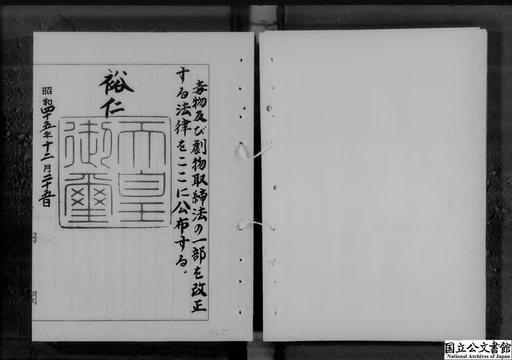 毒物及び劇物取締法の一部を改正
する法律をここに公布する。
裕仁
天皇
御璽
昭和四十五年十二月二十五日
内閣
国立公文書館
National Archives of Japan